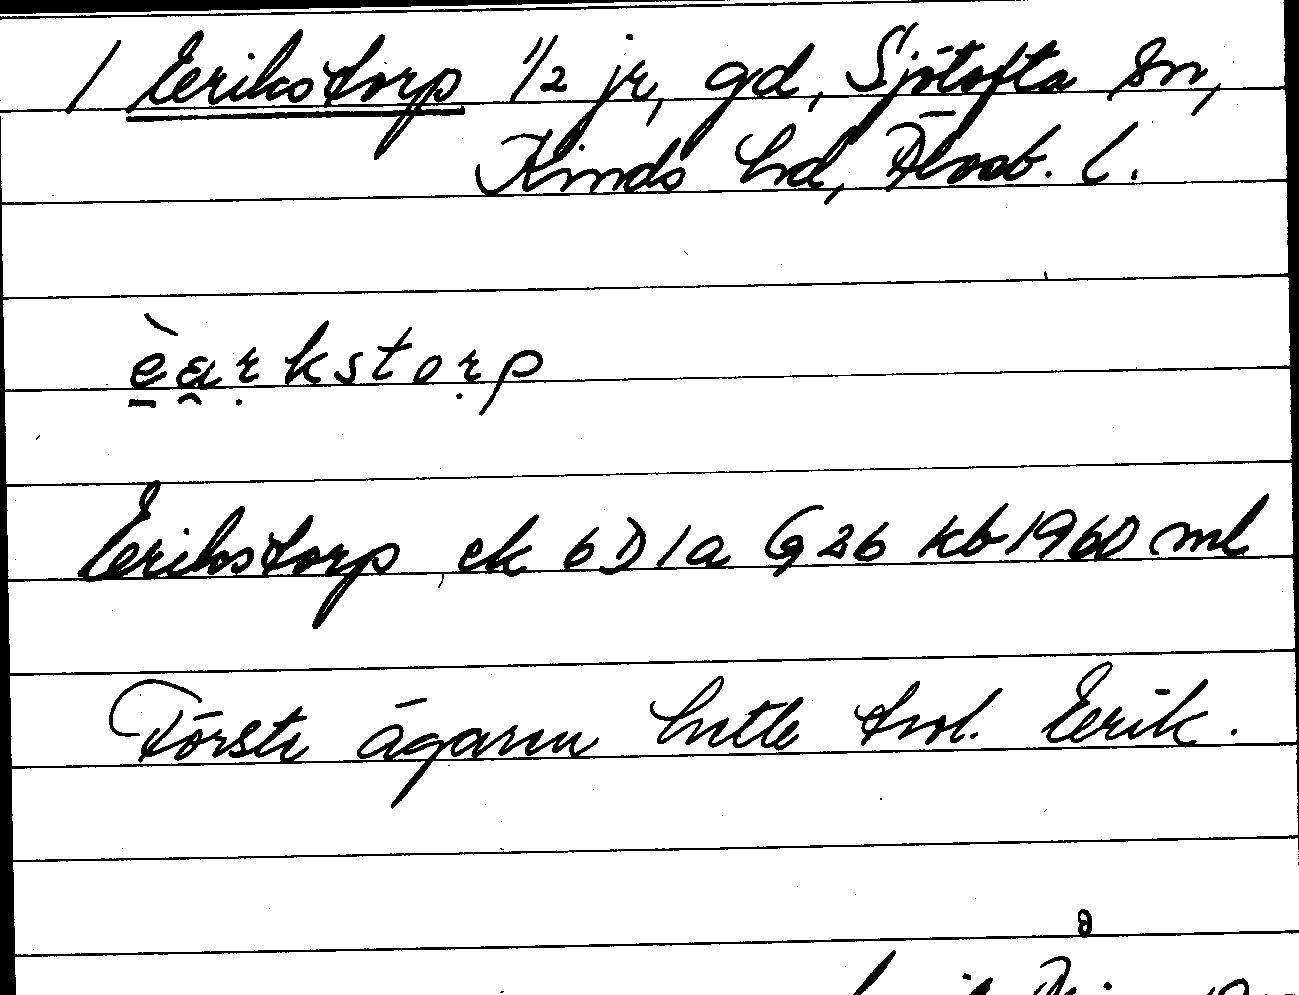 / Erikstorp 1/2 jr, gd, Sjötofta sn,
Kinds hd, Älvsb. l.
è̱a̯ṛkstoṛp
Erikstorp, ek 6D1a G26 kb 1960 ml
Förste ägaren hette trol. Erik.